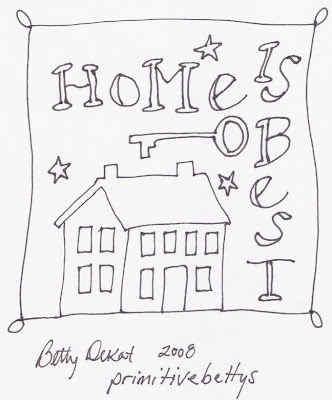 HoMe
IS
BesT
Betty DeKat 2008
primitivebettys